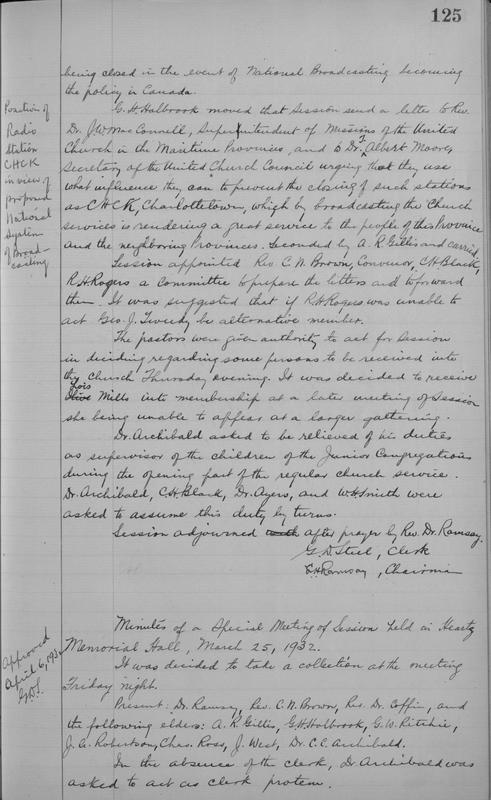 125
being closed in the event of National Broadcasting becoming
the policy in Canada.
G. H. Holbrook moved that Session send a letter to Rev.
Dr. J. W. MacConnell, Superintendent of Missions of the United
Church in the Maritime Provinces, and to Dr. T. Albert Moore,
Secretary of the United Church Council urging that they use
what influence they can to prevent the closing of such stations
as CHCK, Charlottetown, which by broadcasting the Church
services is rendering a great service to the people of this Province
and the neighboring Provinces. Seconded by A. K. Gillis and carried.
Position of
Radio
Station
CHCK
in view of
proposed
National
System
of Broad-
casting
Session appointed Rev. C. N. Brown, Convenor, C. H. Black,
R. H. Rogers a committee to prepare the letters and to forward
them. It was suggested that if R. H. Rogers was unable to
act Geo. J. Tweedy be alternative member.
The pastors were given authority to act for Session
in deciding regarding some persons to be received into
the Church Thursday evening. It was decided to receive
Lois Mills into membership at a later meeting of Session
she being unable to appear at a larger gathering.
Dr. Archibald asked to be relieved of his duties
as supervisor of the children of the Junior Congregations
during the opening part of the regular church service.
Dr. Archibald, C. H. Black, Dr. Ayers, and W. H. Smith were
asked to assume this duty by turns.
Session adjourned after prayer by Rev. Dr. Ramsay.
G. D. Steel, Clerk
E. H. Ramsay, Chairman
Approved
April 6, 1932
G.D.S.
Minutes of a Special Meeting of Session held in Heartz
Memorial Hall, March 25, 1932.
It was decided to take a collection at the meeting
Friday night.
Present: Dr. Ramsay, Rev. C. N. Brown, Rev. Dr. Coffin, and
the following elders: A. K. Gillis, G. H. Holbrook, G. W. Ritchie,
J. A. Robertson, Chas. Ross, J. West, Dr. C. E. Archibald.
In the absence of the clerk, Dr. Archibald was
asked to act as clerk protem.